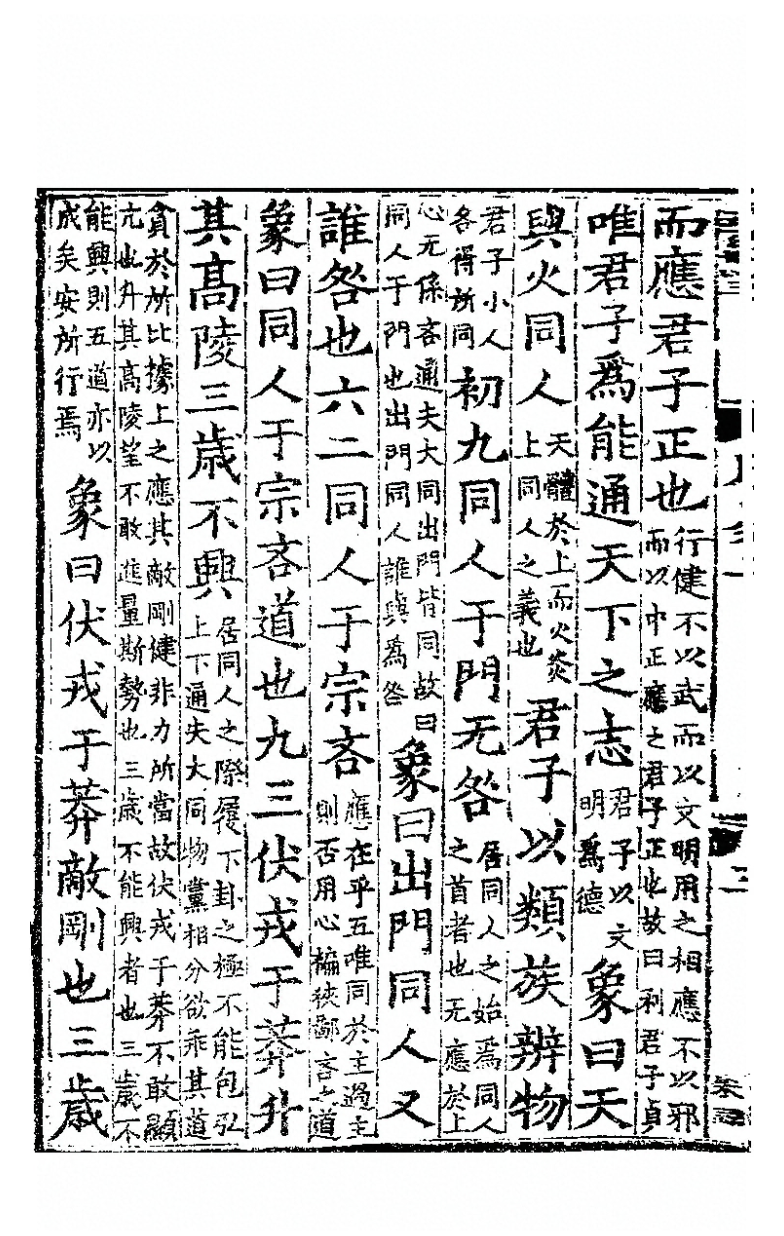 而應君子正也行健不以武而以文明用之相應不以邪而以中正應之君子正也故曰利君子貞
唯君子爲能通天下之志君子以文明爲德象曰天
與火同人天體於上而火炎上同人之義也君子以類族辨物
君子小人各得所同初九同人于門无咎居同人之始爲同人之首者也无應於上
心无係吝通夫大同出門皆同故曰同人于門也出門同人誰與爲咎象曰出門同人又
誰咎也六二同人于宗吝應在乎五唯同於主過主則否用心褊狹鄙吝之道
象曰同人于宗吝道也九三伏戎于莽升
其高陵三歲不興居同人之際履下卦之極不能包弘上下通夫大同物黨相分欲乖其道
貪於所比據上之應其敵剛健非力所當故伏戎于莽不敢顯亢也升其高陵望不敢進量斯勢也三歲不能興者也三歲不
能興則五道亦以成矣安所行焉象曰伏戎于莽敵剛也三歲